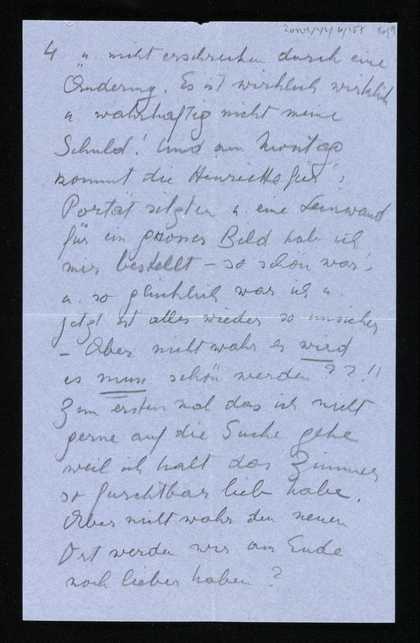 4 u. nicht erschrecken durch eine
Änderung. Es ist wirklich wirklich
u wahrhaftig nicht meine
Schuld! Und am Montag
kommt die Henriette für's
Portät sitzen u eine Leinwand
für ein grosses Bild hab ich
mir bestellt – so schön war's
u. so glücklich war ich u.
jetzt ist alles wieder so unsicher
– Aber nicht wahr es wird
es muss schön werden ??!!
Zum ersten mal das ich nicht
gerne auf die Suche gehe
weil ich halt das Zimmer
so furchtbar lieb habe.
Aber nicht wahr den neuen
Ort werden wir am Ende
noch lieber haben?